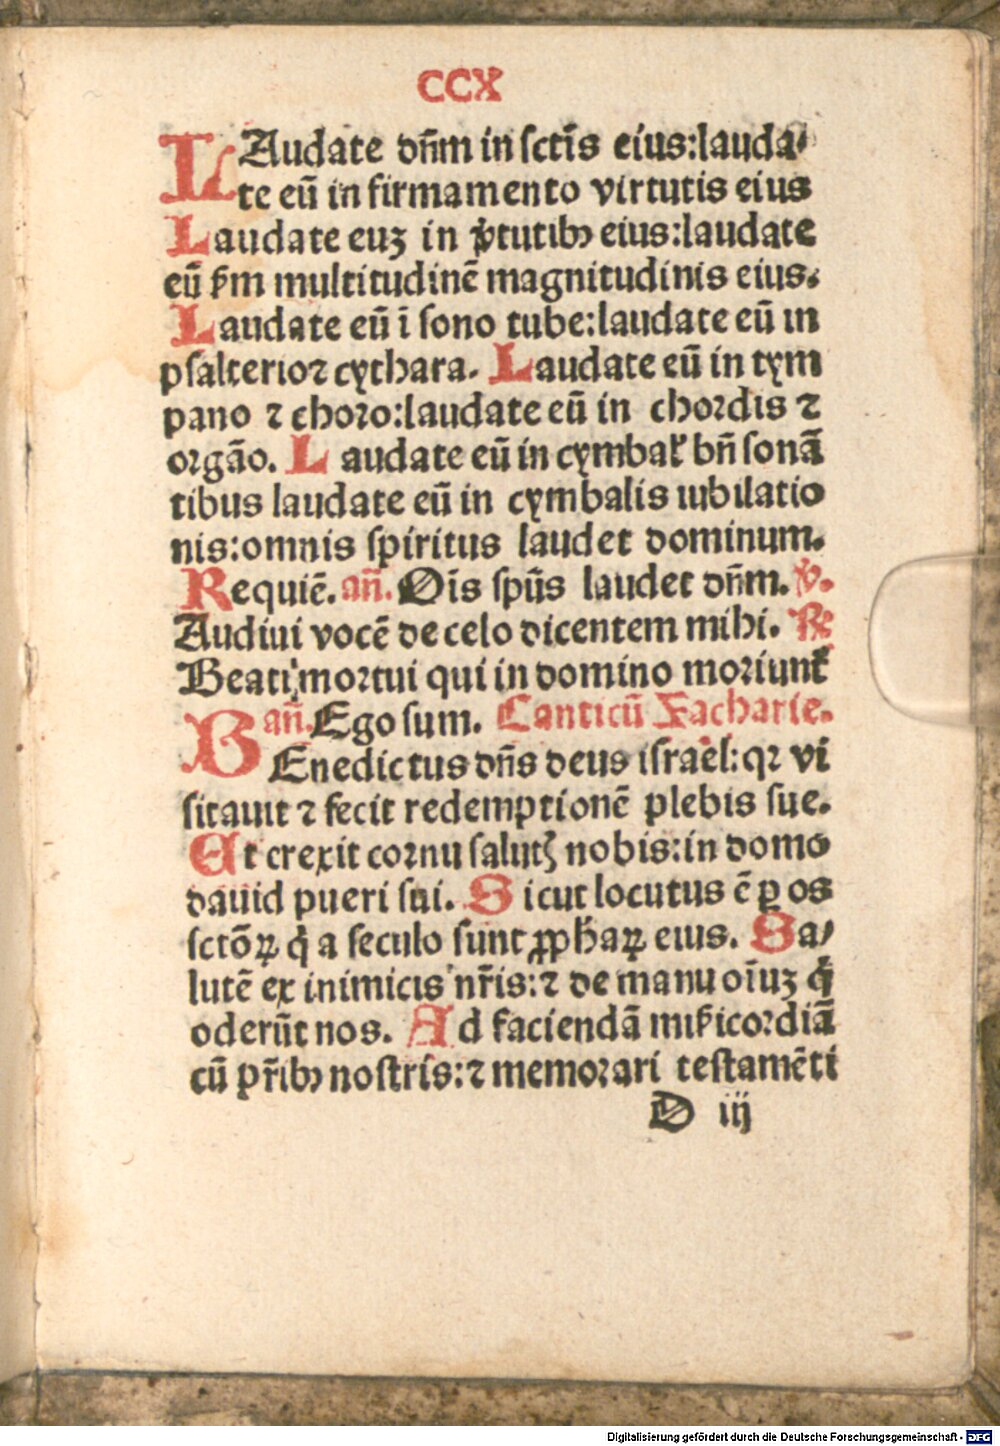 CCX
LAudate dn̄m in sctīs eius:lauda⸗
te eū in firmamento virtutis eius
Laudate euꝫ in v̓tutibꝰ eius:laudate
eū ẜm multitudinē magnitudinis eius.
Laudate eū ī sono tube:laudate eū in
psalterio ⁊ cythara. Laudate eū in tym
pano ⁊ choro:laudate eū in chordis ⁊
orgāo. Laudate eū in cymbal̓ bn̄ sonā
tibus laudate eū in cymbalis iubilatio
nis:omnis spiritus laudet dominum.
Requiē. an̄. Oīs spūs laudet dn̄m. ℣.
Audiui vocē de celo dicentem mihi. ℟
Beati mortui qui in domino moriunt̄
an̄. Ego sum. Canticū Zacharie.
BEnedictus dn̄s deus israel:qꝛ vi
sitauit ⁊ fecit redemptionē plebis sue.
Et erexit cornu salutꝭ nobis:in domo
dauid pueri sui. Sicut locutus ē ꝑ os
sctōꝝ q̇ a seculo sunt ꝓphaꝝ eius. Sa⸗
lutē ex inimicis nr̄is:⁊ de manu oīuꝫ q̇
oderūt nos. Ad faciendā mīẜicordiā
cū pr̄ibꝰ nostris:⁊ memorari testamēti
D iij
Digitalisierung gefördert durch die Deutsche Forschungsgemeinschaft - DFG